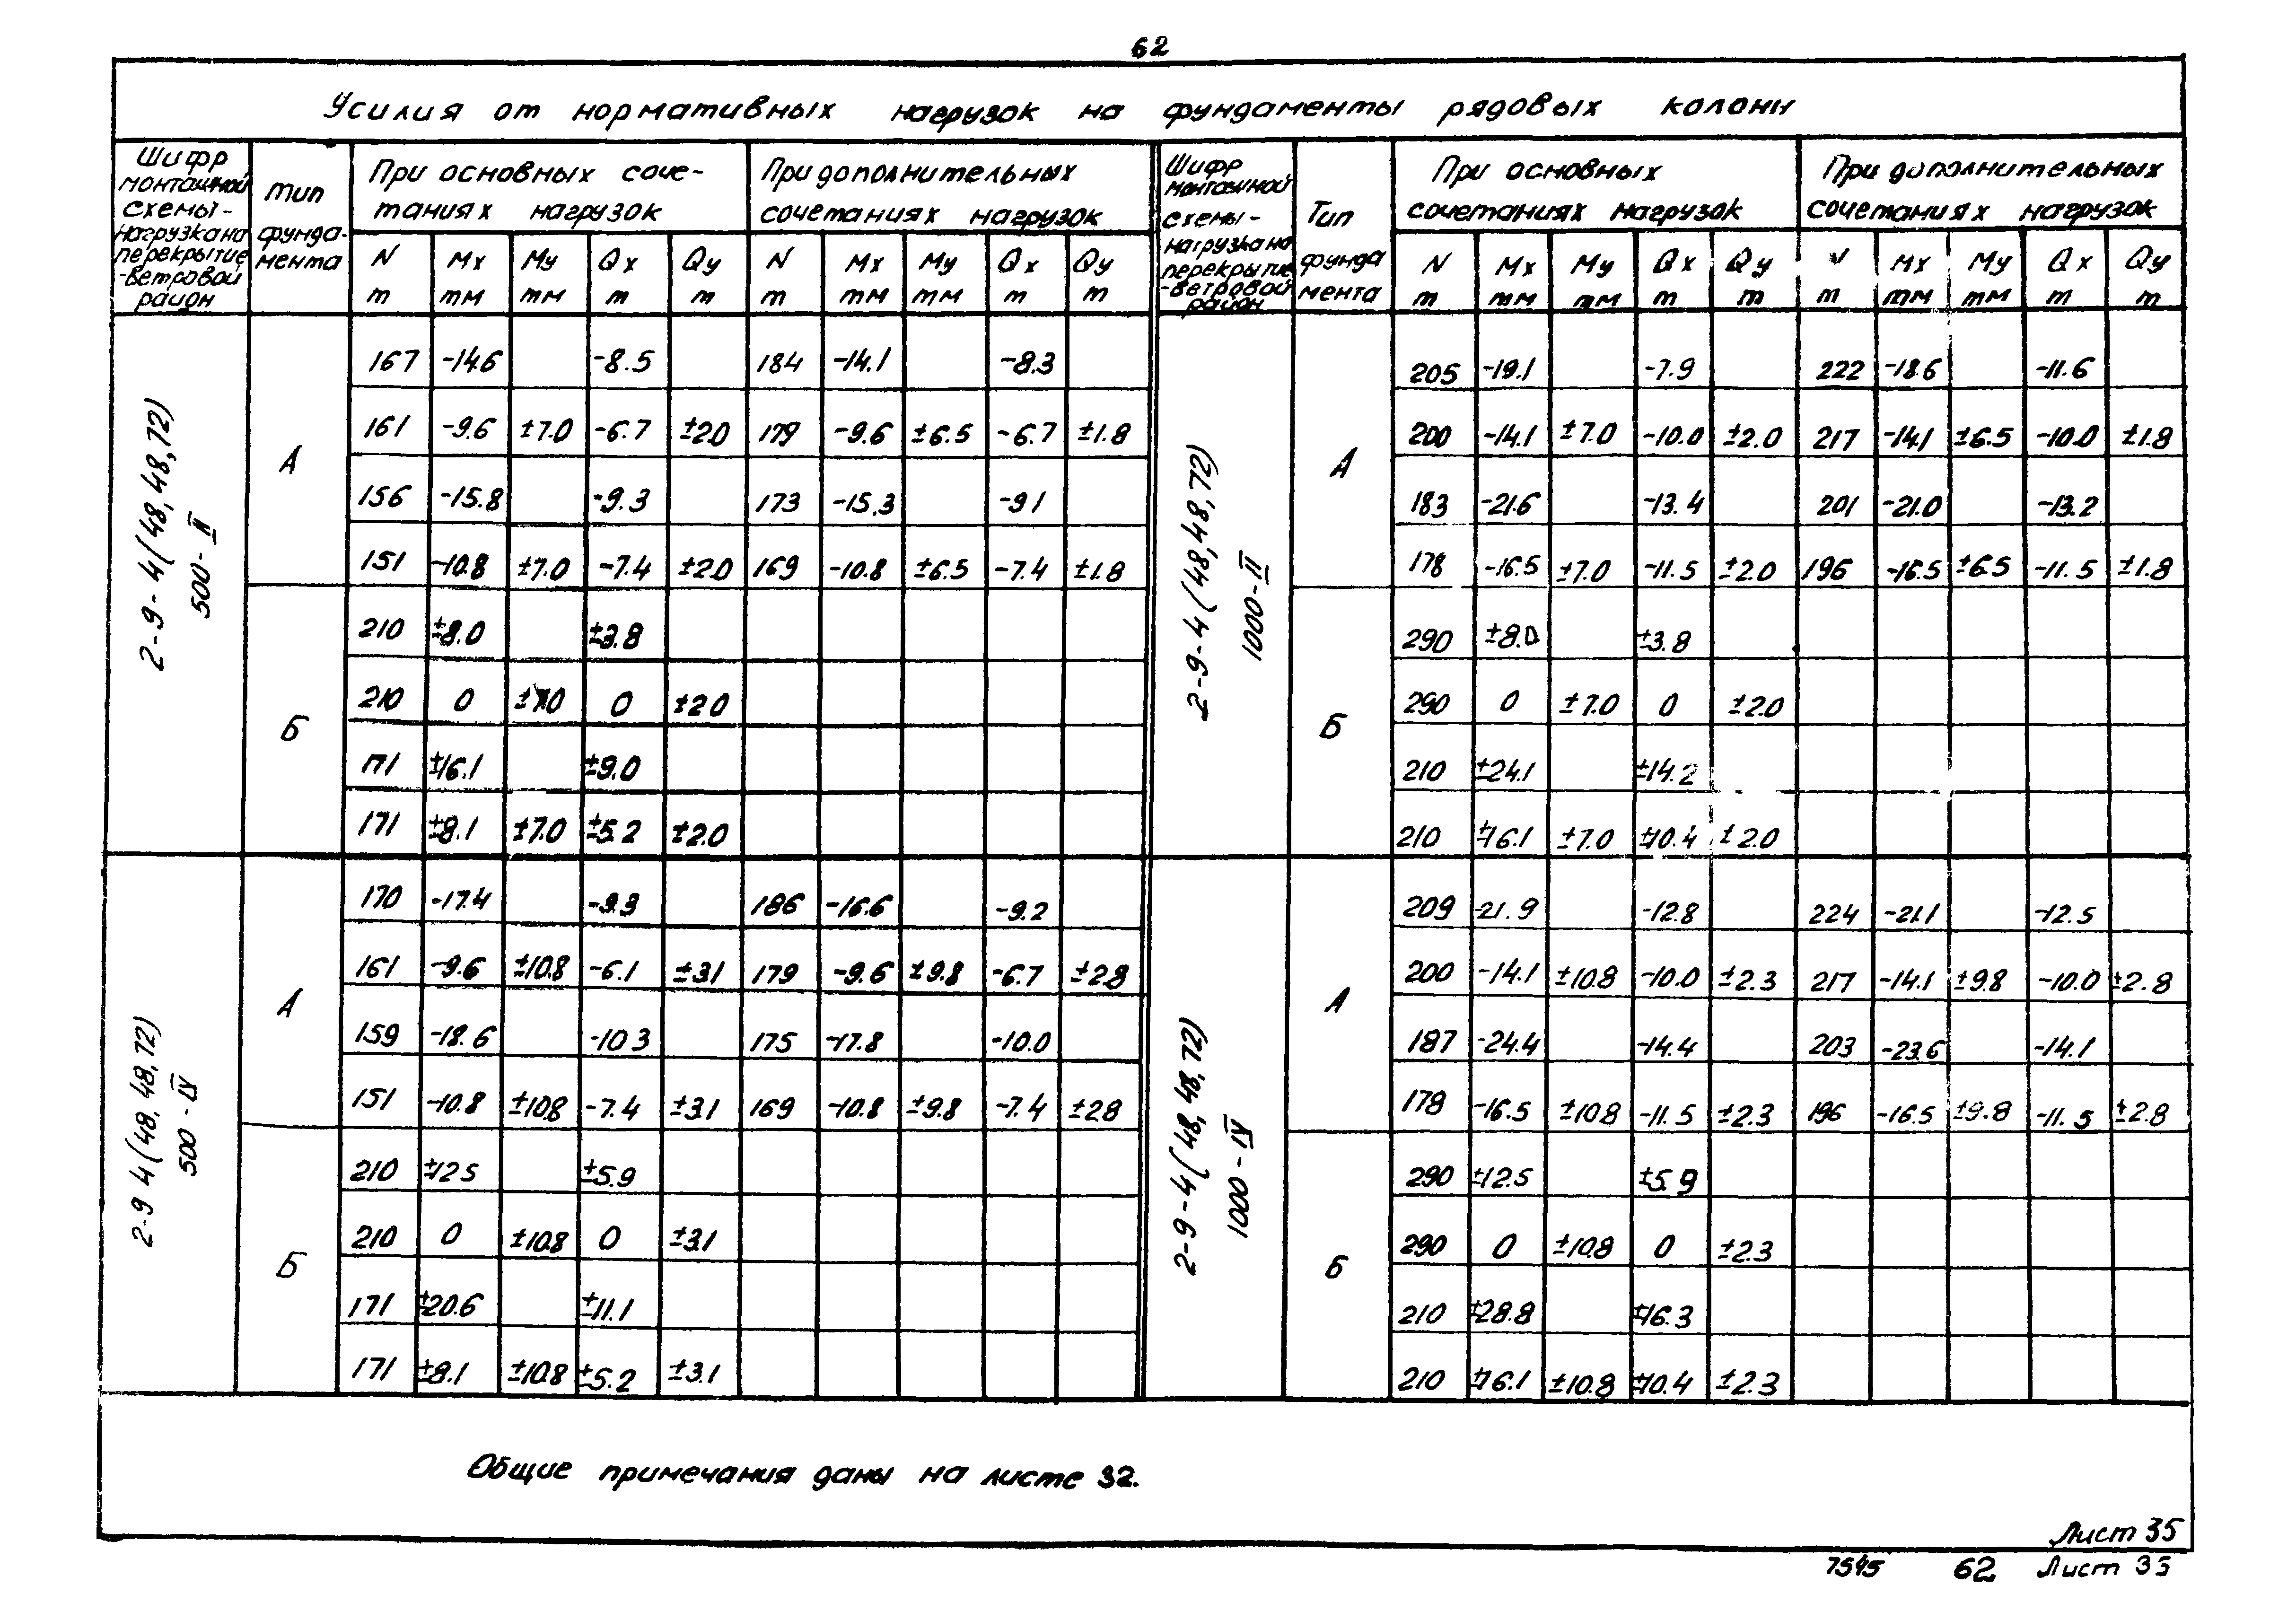 62
Усилия от нормативных нагрузок на фундаменты рядовых колонн
Шифр монтажной схемы - нагрузка на перекрытие - ветровой район
тип фундамента
При основных сочетаниях нагрузок
При дополнительных сочетаниях нагрузок
Шифр монтажной схемы - нагрузка на перекрытие - ветровой район
Тип фундамента
При основных сочетаниях нагрузок
При дополнительных сочетаниях нагрузок
N Mx My Qx Qy N Mx My Qx Qy N Mx My Qx Qy N Mx My Qx Qy
т тм тм т т т тм тм т т т тм тм т т т тм тм т т
2-9-4(48,48,72)
500-II
А
167 -14.6 -8.5 184 -14.1 -8.3
161 -9.6 ±7.0 -6.7 ±2.0 179 -9.6 ±6.5 -6.7 ±1.8
156 -15.8 -9.3 173 -15.3 -9.1
151 -10.8 ±7.0 -7.4 ±2.0 169 -10.8 ±6.5 -7.4 ±1.8
Б
210 ±8.0 ±3.8
210 0 ±7.0 0 ±2.0
171 ±16.1 ±9.0
171 ±8.1 ±7.0 ±5.2 ±2.0
2-9 4(48,48,72)
500-IV
А
170 -17.4 -9.3 186 -16.6 -9.2
161 -9.6 ±10.8 -6.1 ±3.1 179 -9.6 ±9.8 -6.7 ±2.8
159 -18.6 -10.3 175 -17.8 -10.0
151 -10.8 ±10.8 -7.4 ±3.1 169 -10.8 ±9.8 -7.4 ±2.8
Б
210 ±12.5 ±5.9
210 0 ±10.8 0 ±3.1
171 ±20.6 ±11.1
171 ±8.1 ±10.8 ±5.2 ±3.1
2-9-4(48,48,72)
1000-II
А
205 -19.1 -7.9 222 -18.6 -11.6
200 -14.1 ±7.0 -10.0 ±2.0 217 -14.1 ±6.5 -10.0 ±1.8
183 -21.6 -13.4 201 -21.0 -13.2
178 -16.5 ±7.0 -11.5 ±2.0 196 -16.5 ±6.5 -11.5 ±1.8
Б
290 ±8.0 ±3.8
290 0 ±7.0 0 ±2.0
210 ±24.1 ±14.2
210 ±16.1 ±7.0 ±10.4 ±2.0
2-9-4(48,48,72)
1000-IV
А
209 -21.9 -12.8 224 -21.1 -12.5
200 -14.1 ±10.8 -10.0 ±2.3 217 -14.1 ±9.8 -10.0 ±2.8
187 -24.4 -14.4 203 -23.6 -14.1
178 -16.5 ±10.8 -11.5 ±2.3 196 -16.5 ±9.8 -11.5 ±2.8
Б
290 ±12.5 ±5.9
290 0 ±10.8 0 ±2.3
210 ±28.8 ±16.3
210 ±16.1 ±10.8 ±10.4 ±2.3
Общие примечания даны на листе 32.
Лист 35
7545 62 Лист 35